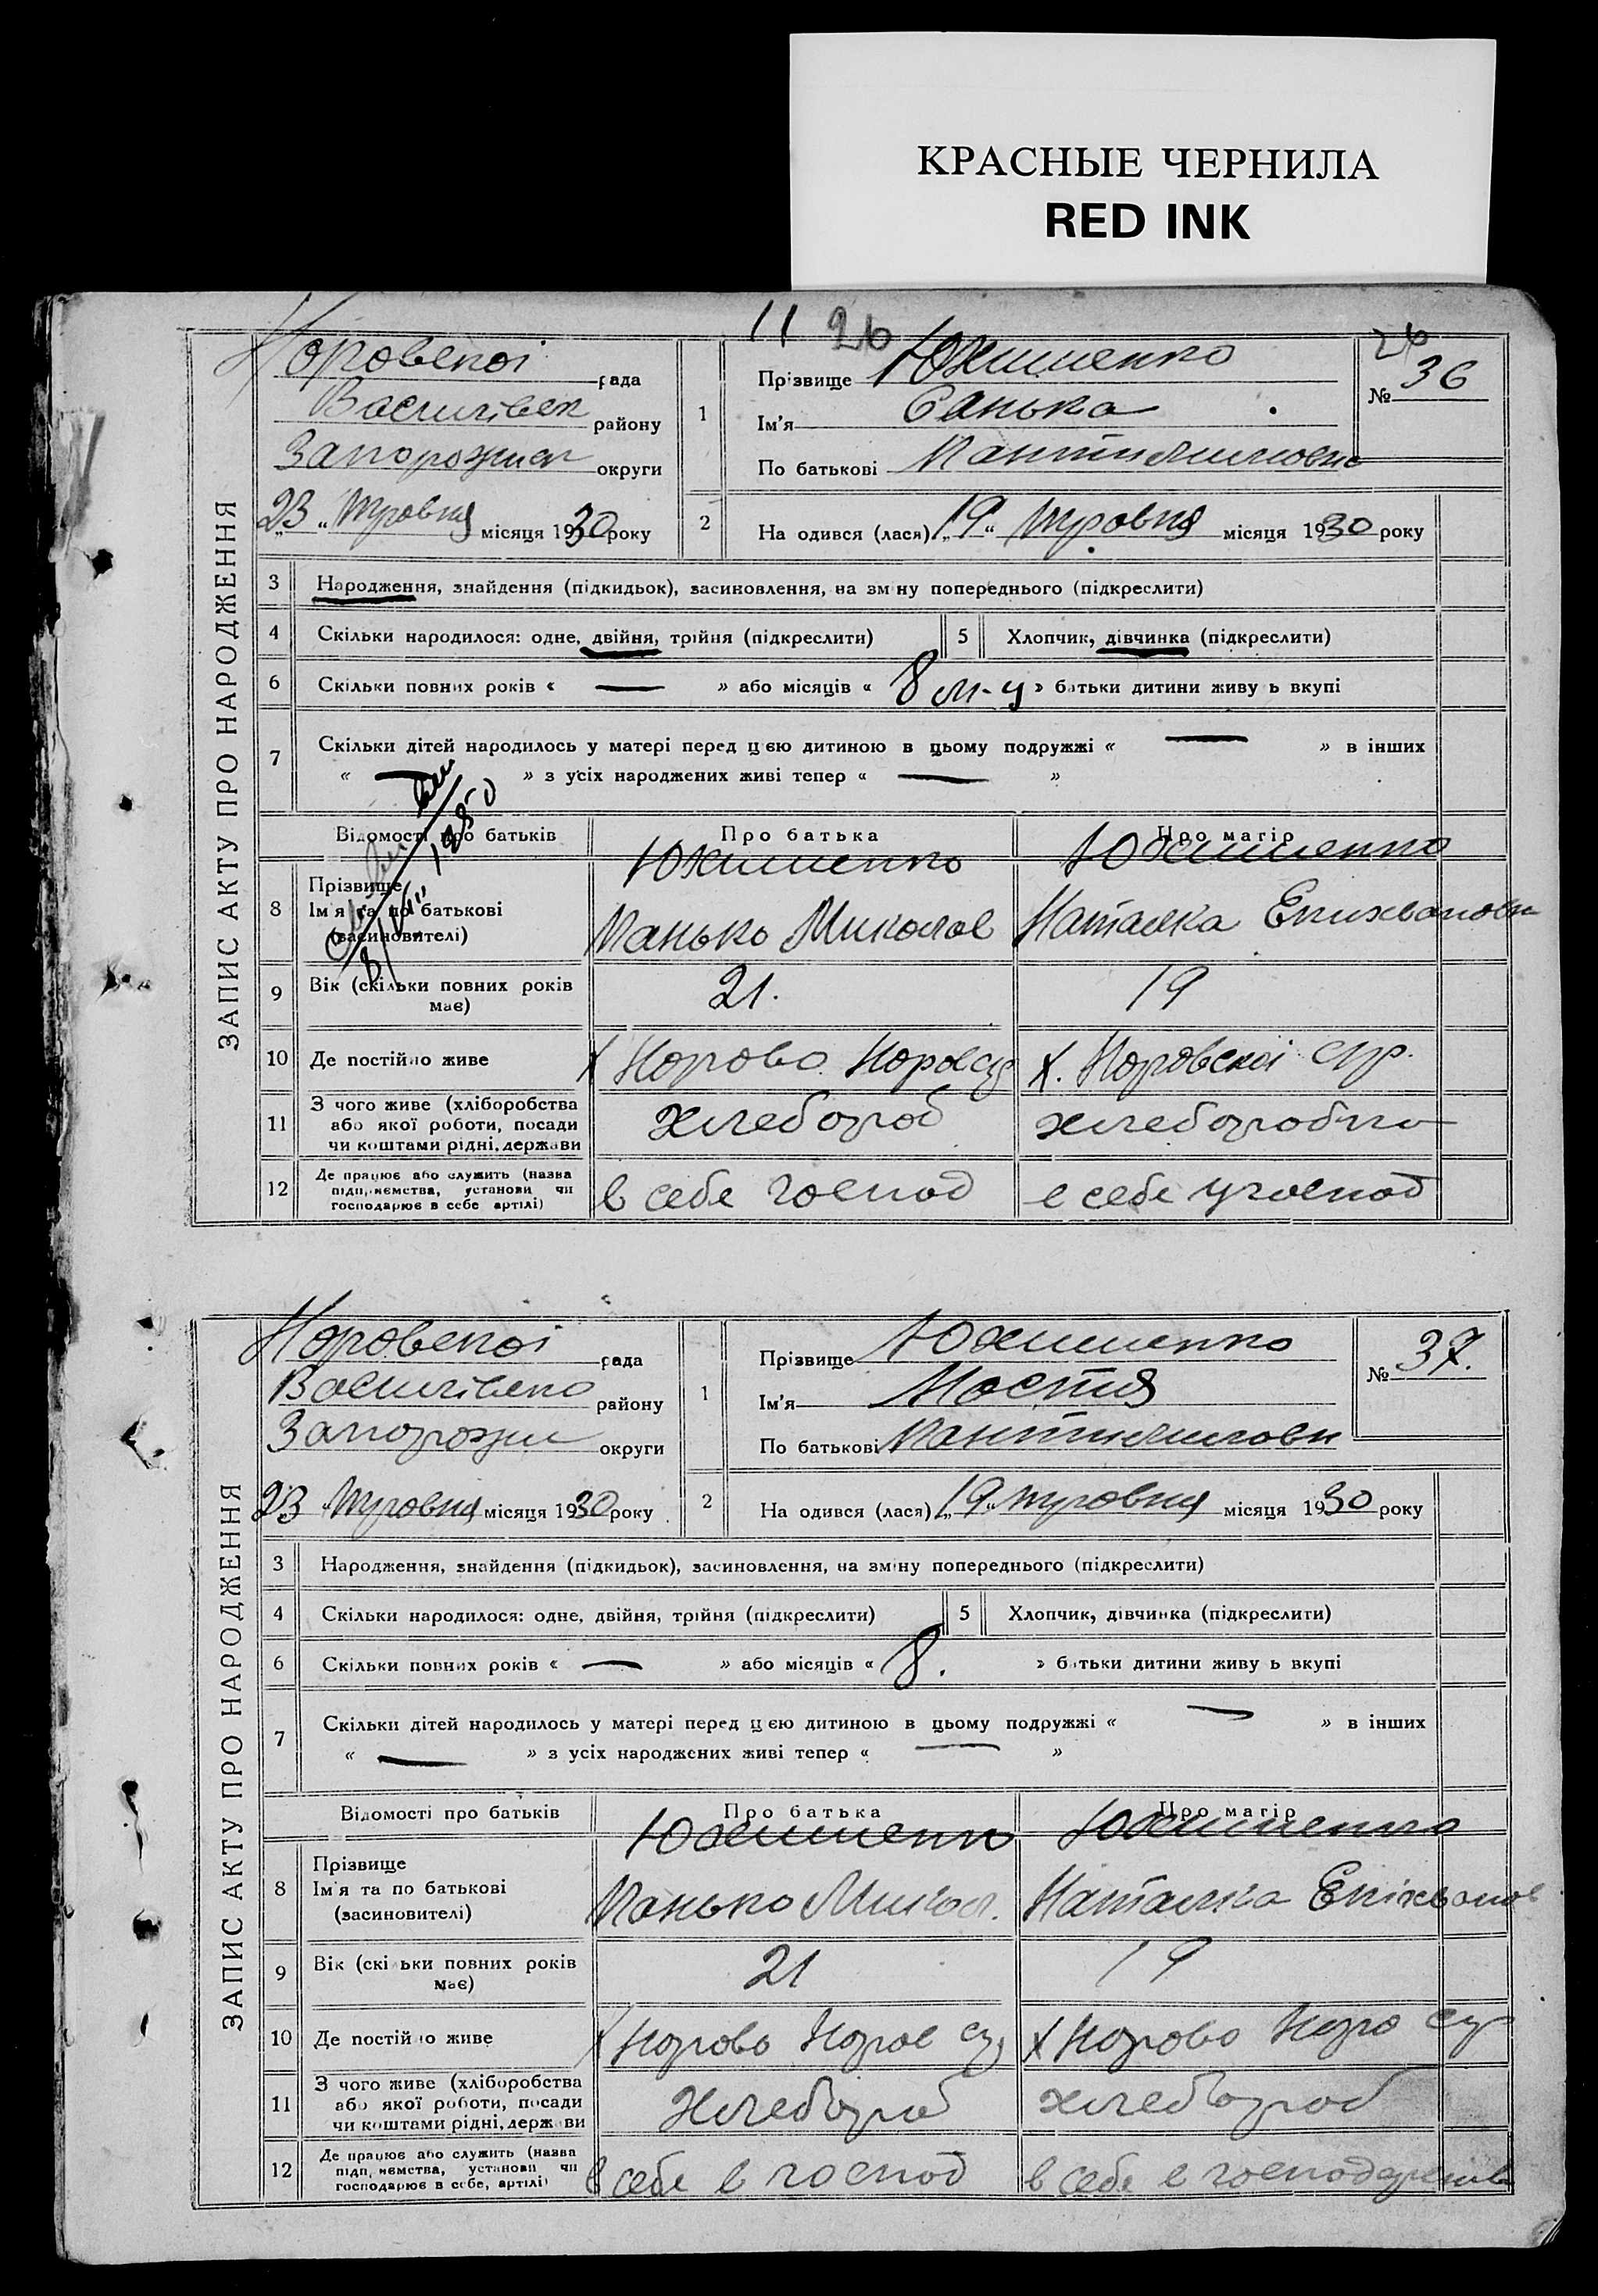 КРАСНЫЕ ЧЕРНИЛА
RED INK
11 26
26
ЗАПИС АКТУ ПРО НАРОДЖЕННЯ
рада
району
Запорожск округи
23 „Травня місяця 1930 року
1
Прізвище Юхименко
Ім'я Санька
По батькові
№ 36
2
На одився (лася) „19“ Травня місяця 1930 року
3 Народження, знайдення (підкидьок), засиновлення, на зм ну попереднього (підкреслити)
4 Скільки народилося: одне, двійня, трійня (підкреслити)
5 Хлопчик, дівчинка (підкреслити)
6 Скільки повних років « — » або місяців « 8 м-ц » батьки дитини живу ь вкупі
7 Скільки дітей народилось у матері перед цією дитиною в цьому подружжі « — » в інших
« — » з усіх народжених живі тепер « — »
Відомості про батьків
Про батька
Про матір
8 Прізвище
Ім'я та по батькові
(засиновителі)
Юхименко
Панько Миколов
Юхименко
Наталка Епихвановн
9 Вік (скільки повних років
має)
21.
19
10 Де постійно живе
11 З чого живе (хліборобства
або якої роботи, посади
чи коштами рідні, держави
хлебороб
хлеборобка
12 Де працює або служить (назва
підприємства, установи чи
господарює в себе артілі)
в себе господ
в себе у господ
ЗАПИС АКТУ ПРО НАРОДЖЕННЯ
рада
району
округи
23 Травня місяця 1930 року
1
Прізвище Юхименко
Ім'я Настя
По батькові
№ 37.
2
На одився (лася) „19“ травня місяця 1930 року
3 Народження, знайдення (підкидьок), засиновлення, на зміну попереднього (підкреслити)
4 Скільки народилося: одне, двійня, трійня (підкреслити)
5 Хлопчик, дівчинка (підкреслити)
6 Скільки повних років « — » або місяців « 8. » батьки дитини живу ь вкупі
7 Скільки дітей народилось у матері перед цією дитиною в цьому подружжі « — » в інших
« — » з усіх народжених живі тепер « — »
Відомості про батьків
Про батька
Про матір
8 Прізвище
Ім'я та по батькові
(засиновителі)
Юхименко
Панько Микол.
Юхименко
Наталка Епіхванов
9 Вік (скільки повних років
має)
21
19
10 Де постійно живе
11 З чого живе (хліборобства
або якої роботи, посади
чи коштами рідні, держави
Хлебороб
хлебороб
12 Де працює або служить (назва
підприємства, установи чи
господарює в себе, артілі)
в себе в господ